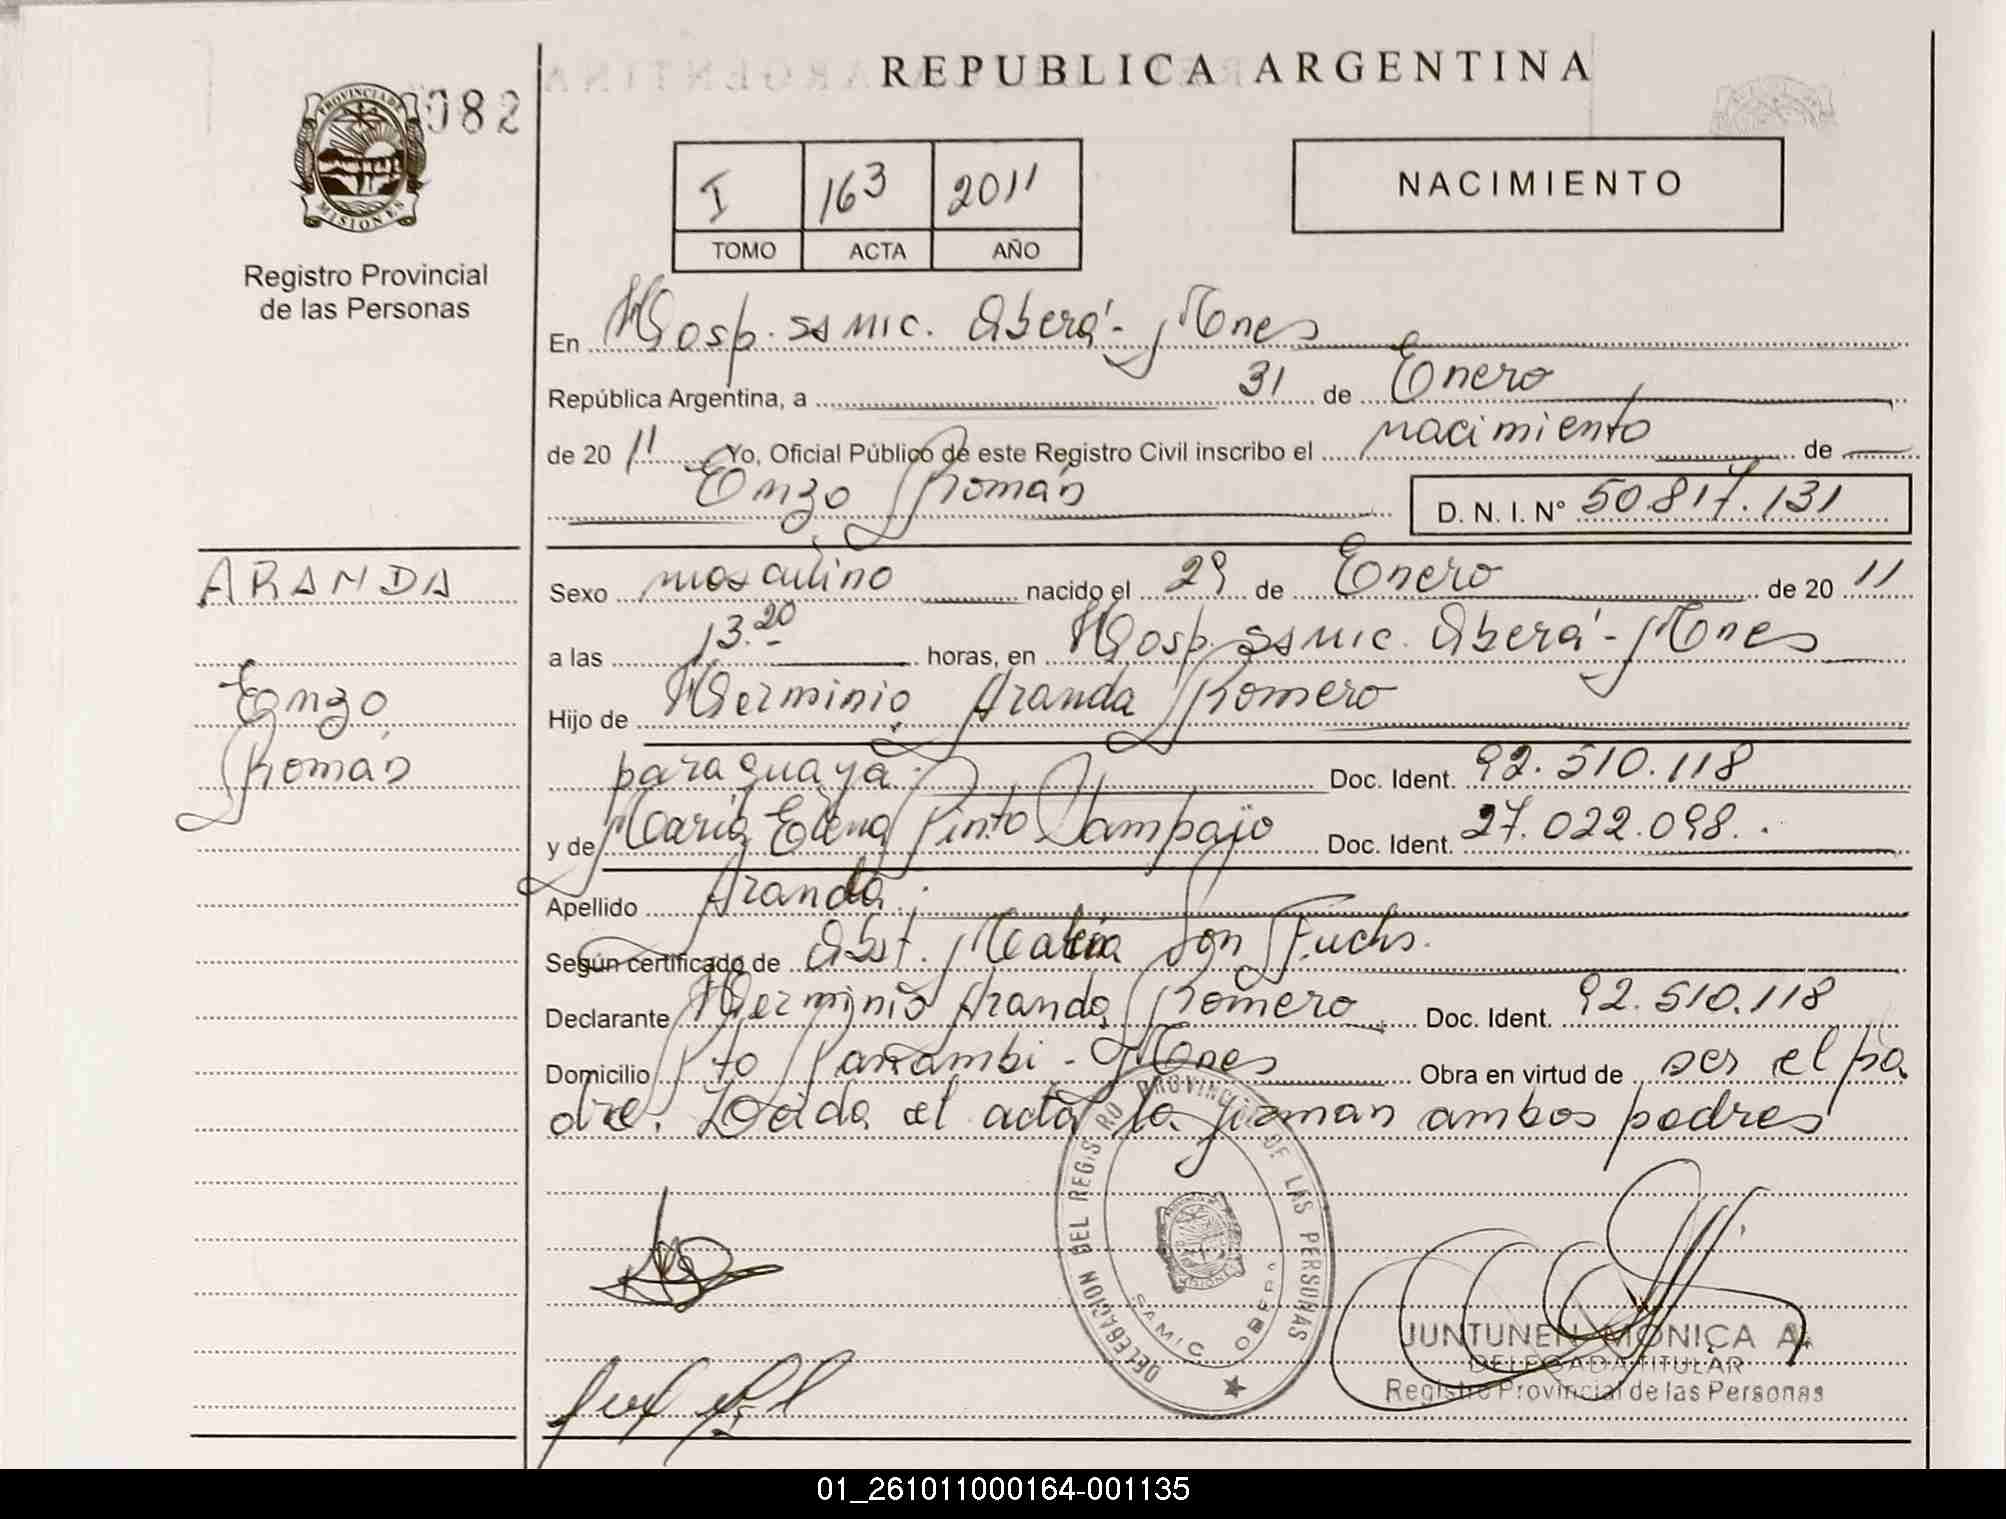 REPUBLICA ARGENTINA
PROVINCIA DE
MISIONES
082
Registro Provincial
de las Personas
I 163 2011
TOMO ACTA AÑO
NACIMIENTO
En Hosp. SAMIC. Oberá - Mnes
República Argentina, a 31 de Enero
de 20 11 Yo, Oficial Público de este Registro Civil inscribo el nacimiento de
Enzo Román D. N. I. N° 50.817.131
ARANDA
Enzo
Román
Sexo masculino nacido el 29 de Enero de 20 11
a las 13.20 horas, en Hosp. SAMIC. Oberá - Mnes
Hijo de Herminio Aranda Romero
paraguaya. Doc. Ident. 92.510.118
y de María Elena Pinto Sampajo Doc. Ident. 27.022.098.
Apellido Aranda.
Según certificado de Obst. María Son Fuchs.
Declarante Herminio Aranda Romero Doc. Ident. 92.510.118
Domicilio Pto Panambi - Mnes Obra en virtud de ser el pa
dre. Leida el acta la firman ambos padres
DELEGACION DEL REGISTRO PROVINCIAL DE LAS PERSONAS
MISIONES
SAMIC OBERA
JUNTUNEN MONICA A.
DELEGADA TITULAR
Registro Provincial de las Personas
01_261011000164-001135